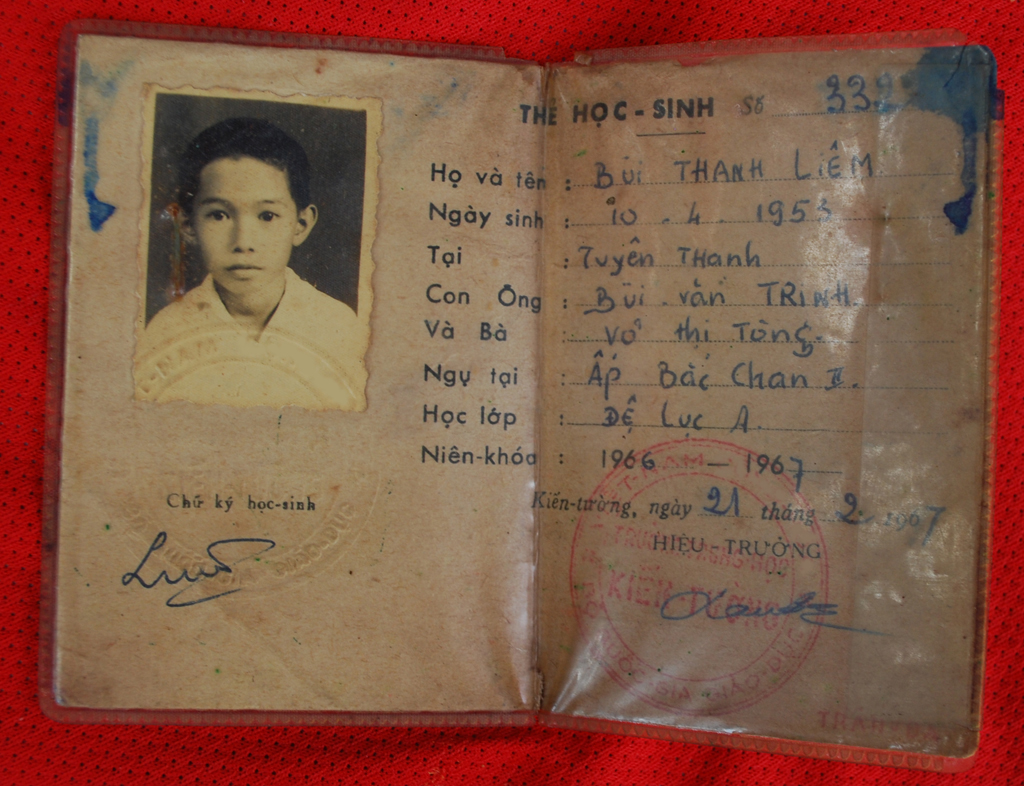 THẺ HỌC - SINH Số 33
Họ và tên : BÙI THANH LIÊM
Ngày sinh : 10 - 4 - 1953
Tại : Tuyên Thanh
Con Ông : Bùi văn TRINH.
Và Bà : Võ thị Tòng.
Ngụ tại : Ấp Bắc Chan II.
Học lớp : ĐỆ Lục A.
Niên-khóa : 1966 - 1967
Chữ ký học-sinh
Kiến-tường, ngày 21 tháng 2 1967
HIỆU - TRƯỞNG
T-NAM
TRUNG-HỌC
KIẾN-TƯỜNG